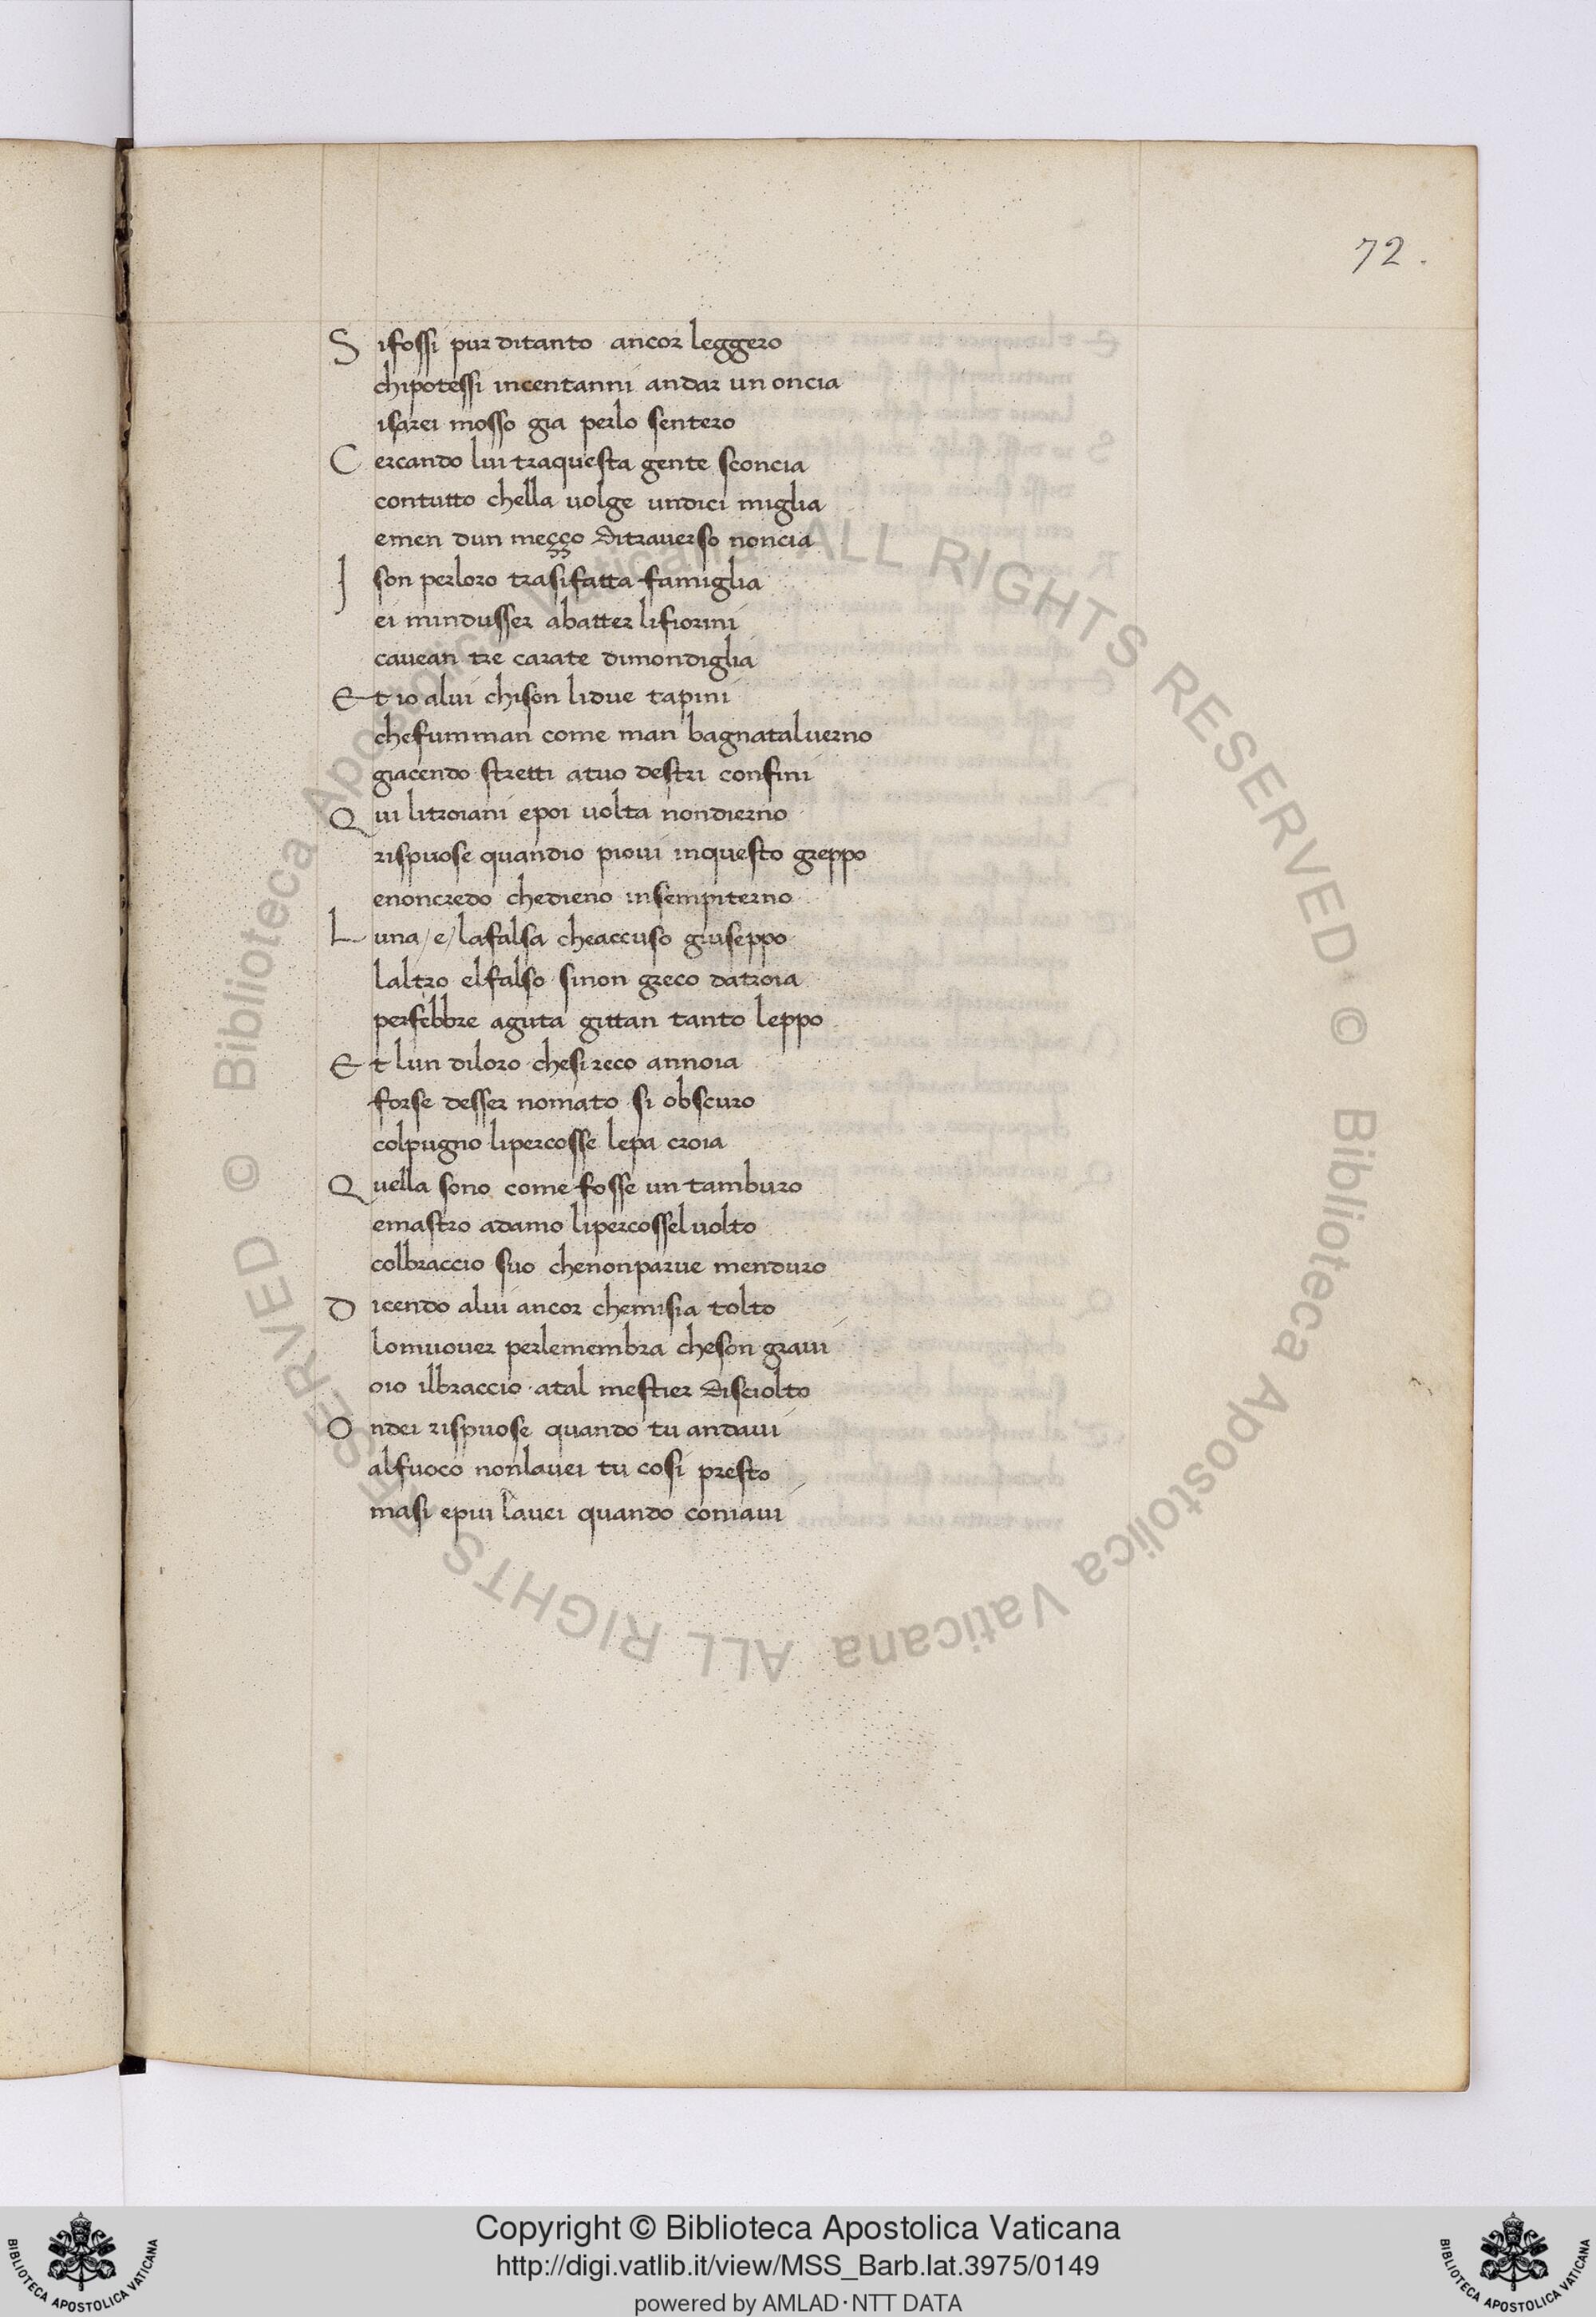 72.
Sifossi pur ditanto ancor leggero
chipotessi incentanni andar un oncia
isarei mosso gia perlo sentero
Cercando lui traquesta gente sconcia
contutto chella uolge undici miglia
emen dun meççо ditrauerso noncia
I son perloro trasifatta famiglia
ei mindusser abatter lifiorini
cauean tre carate dimondiglia
Et io alui chison lidue tapini
chefumman come man bagnataluerno
giacendo stretti atuo destri confini
Qui litroiani epoi uolta nondierno
rispuose quandio pioui inquesto greppo
enoncredo chedieno insempiterno
Luna/e/lafalsa cheaccuso giuseppo
laltro elfalso sinon greco datroia
perfebbre aguta gittan tanto leppo
Et lun diloro chesireco annoia
forse desser nomato si obscuro
colpugno lipercosse lepa croia
Quella sono come fosse un tamburo
emastro adamo lipercosseluolto
colbraccio suo chenonparue menduro
Dicendo alui ancor chemisia tolto
lomuouer perlemembra cheson graui
oio ilbraccio atal mestier disciolto
Ondei rispuose quando tu andaui
alfuoco nonlauei tu cosi presto
masi epiu lauei quando coniaui
© Biblioteca Apostolica Vaticana ALL RIGHTS RESERVED © Biblioteca Apostolica Vaticana ALL RIGHTS RESERVED
Copyright © Biblioteca Apostolica Vaticana
http://digi.vatlib.it/view/MSS_Barb.lat.3975/0149
powered by AMLAD·NTT DATA
BIBLIOTECA APOSTOLICA VATICANA
BIBLIOTECA APOSTOLICA VATICANA